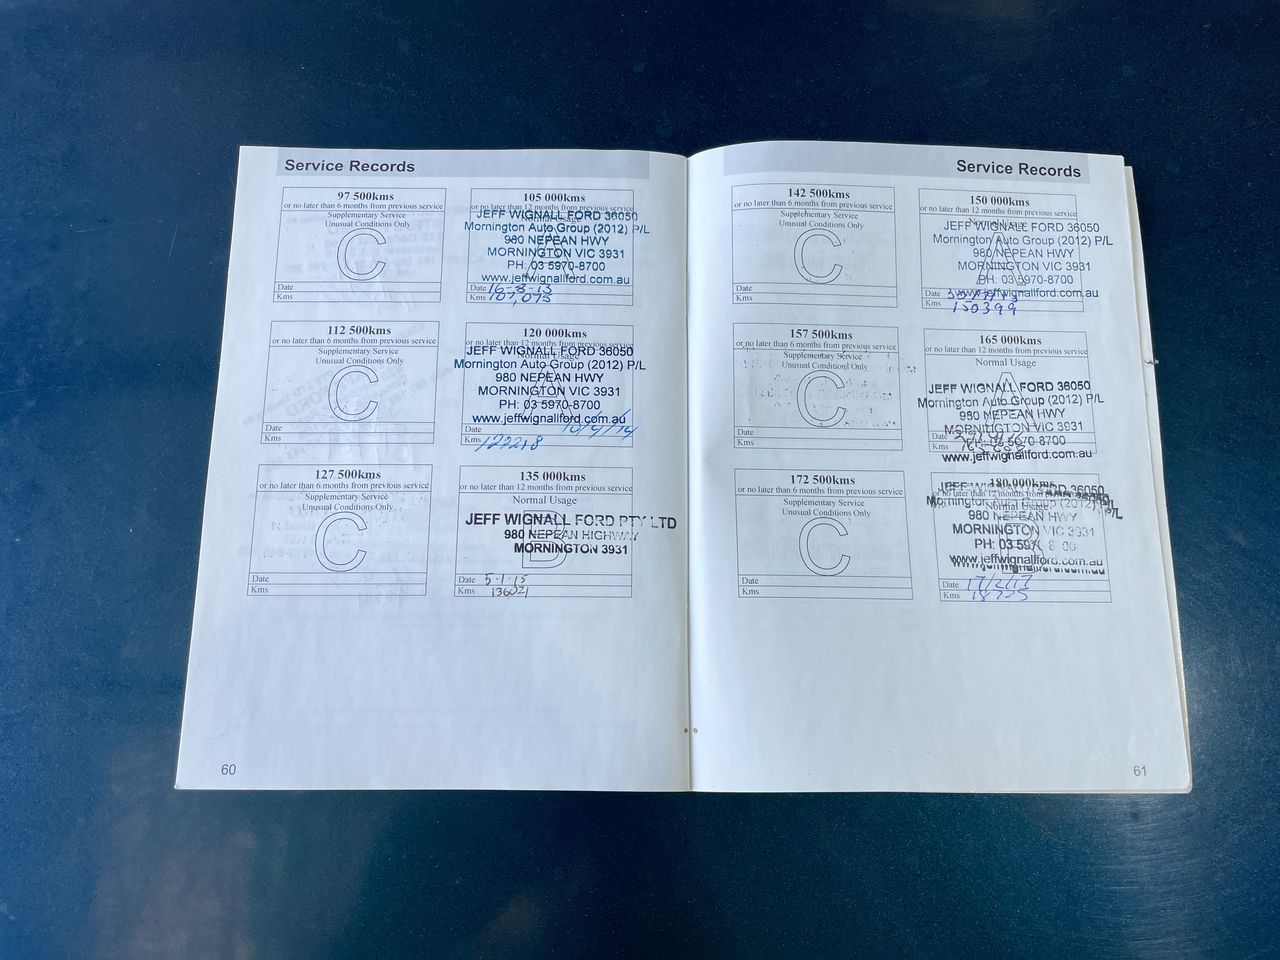 Service Records
97 500kms
or no later than 6 months from previous service
Supplementary Service
Unusual Conditions Only
C
Date
Kms
105 000kms
or no later than 12 months from previous service
Normal Usage
A
JEFF WIGNALL FORD 36050
Mornington Auto Group (2012) P/L
980 NEPEAN HWY
MORNINGTON VIC 3931
PH: 03 5970-8700
www.jeffwignallford.com.au
Date 16-8-13
Kms 107,075
112 500kms
or no later than 6 months from previous service
Supplementary Service
Unusual Conditions Only
C
Date
Kms
120 000kms
or no later than 12 months from previous service
Normal Usage
A
JEFF WIGNALL FORD 36050
Mornington Auto Group (2012) P/L
980 NEPEAN HWY
MORNINGTON VIC 3931
PH: 03 5970-8700
www.jeffwignallford.com.au
Date
Kms 122218
127 500kms
or no later than 6 months from previous service
Supplementary Service
Unusual Conditions Only
C
Date
Kms
135 000kms
or no later than 12 months from previous service
Normal Usage
B
JEFF WIGNALL FORD PTY LTD
980 NEPEAN HIGHWAY
MORNINGTON 3931
Date 5-1-15
Kms 136021
60
Service Records
142 500kms
or no later than 6 months from previous service
Supplementary Service
Unusual Conditions Only
C
Date
Kms
150 000kms
or no later than 12 months from previous service
Normal Usage
A
JEFF WIGNALL FORD 36050
Mornington Auto Group (2012) P/L
980 NEPEAN HWY
MORNINGTON VIC 3931
PH: 03 5970-8700
www.jeffwignallford.com.au
Date
Kms 150399
157 500kms
or no later than 6 months from previous service
Supplementary Service
Unusual Conditions Only
C
Date
Kms
165 000kms
or no later than 12 months from previous service
Normal Usage
A
JEFF WIGNALL FORD 36050
Mornington Auto Group (2012) P/L
980 NEPEAN HWY
MORNINGTON VIC 3931
PH: 03 5970-8700
www.jeffwignallford.com.au
Date
Kms
172 500kms
or no later than 6 months from previous service
Supplementary Service
Unusual Conditions Only
C
Date
Kms
180 000kms
or no later than 12 months from previous service
Normal Usage
JEFF WIGNALL FORD 36050
Mornington Auto Group (2012) P/L
980 NEPEAN HWY
MORNINGTON VIC 3931
PH: 03 597
www.jeffwignallford.com.au
Date 17/2/17
Kms
61